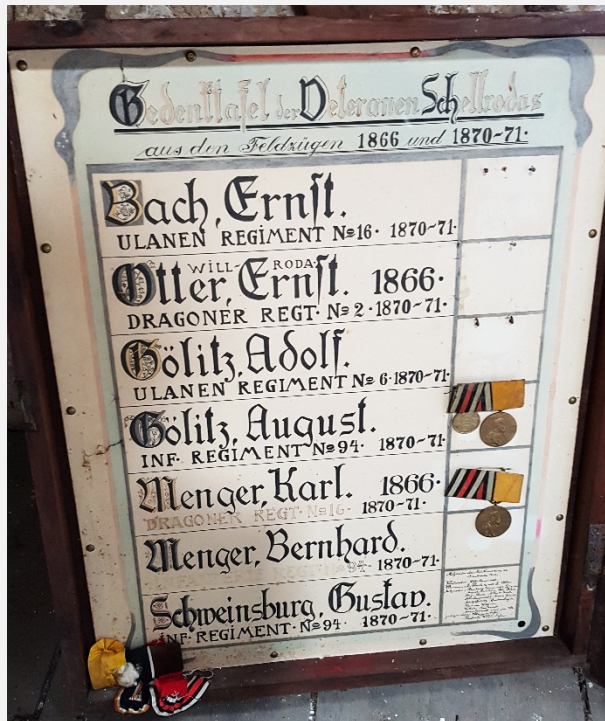 Gedenktafel der Veteranen Schellrodas
aus den Feldzügen 1866 und 1870-71.
Bach, Ernst.
ULANEN REGIMENT No 16. 1870-71.
WILL- RODA-
Otter, Ernst. 1866.
DRAGONER REGT. No 2. 1870-71.
Gölitz, Adolf.
ULANEN REGIMENT No 6. 1870-71.
Gölitz, August.
INF. REGIMENT No 94. 1870-71.
Menger, Karl. 1866.
DRAGONER REGT. No 16. 1870-71.
Menger, Bernhard.
REGIMENT No 94. 1870-71.
Schweinsburg, Gustav.
INF. REGIMENT. No 94. 1870-71.